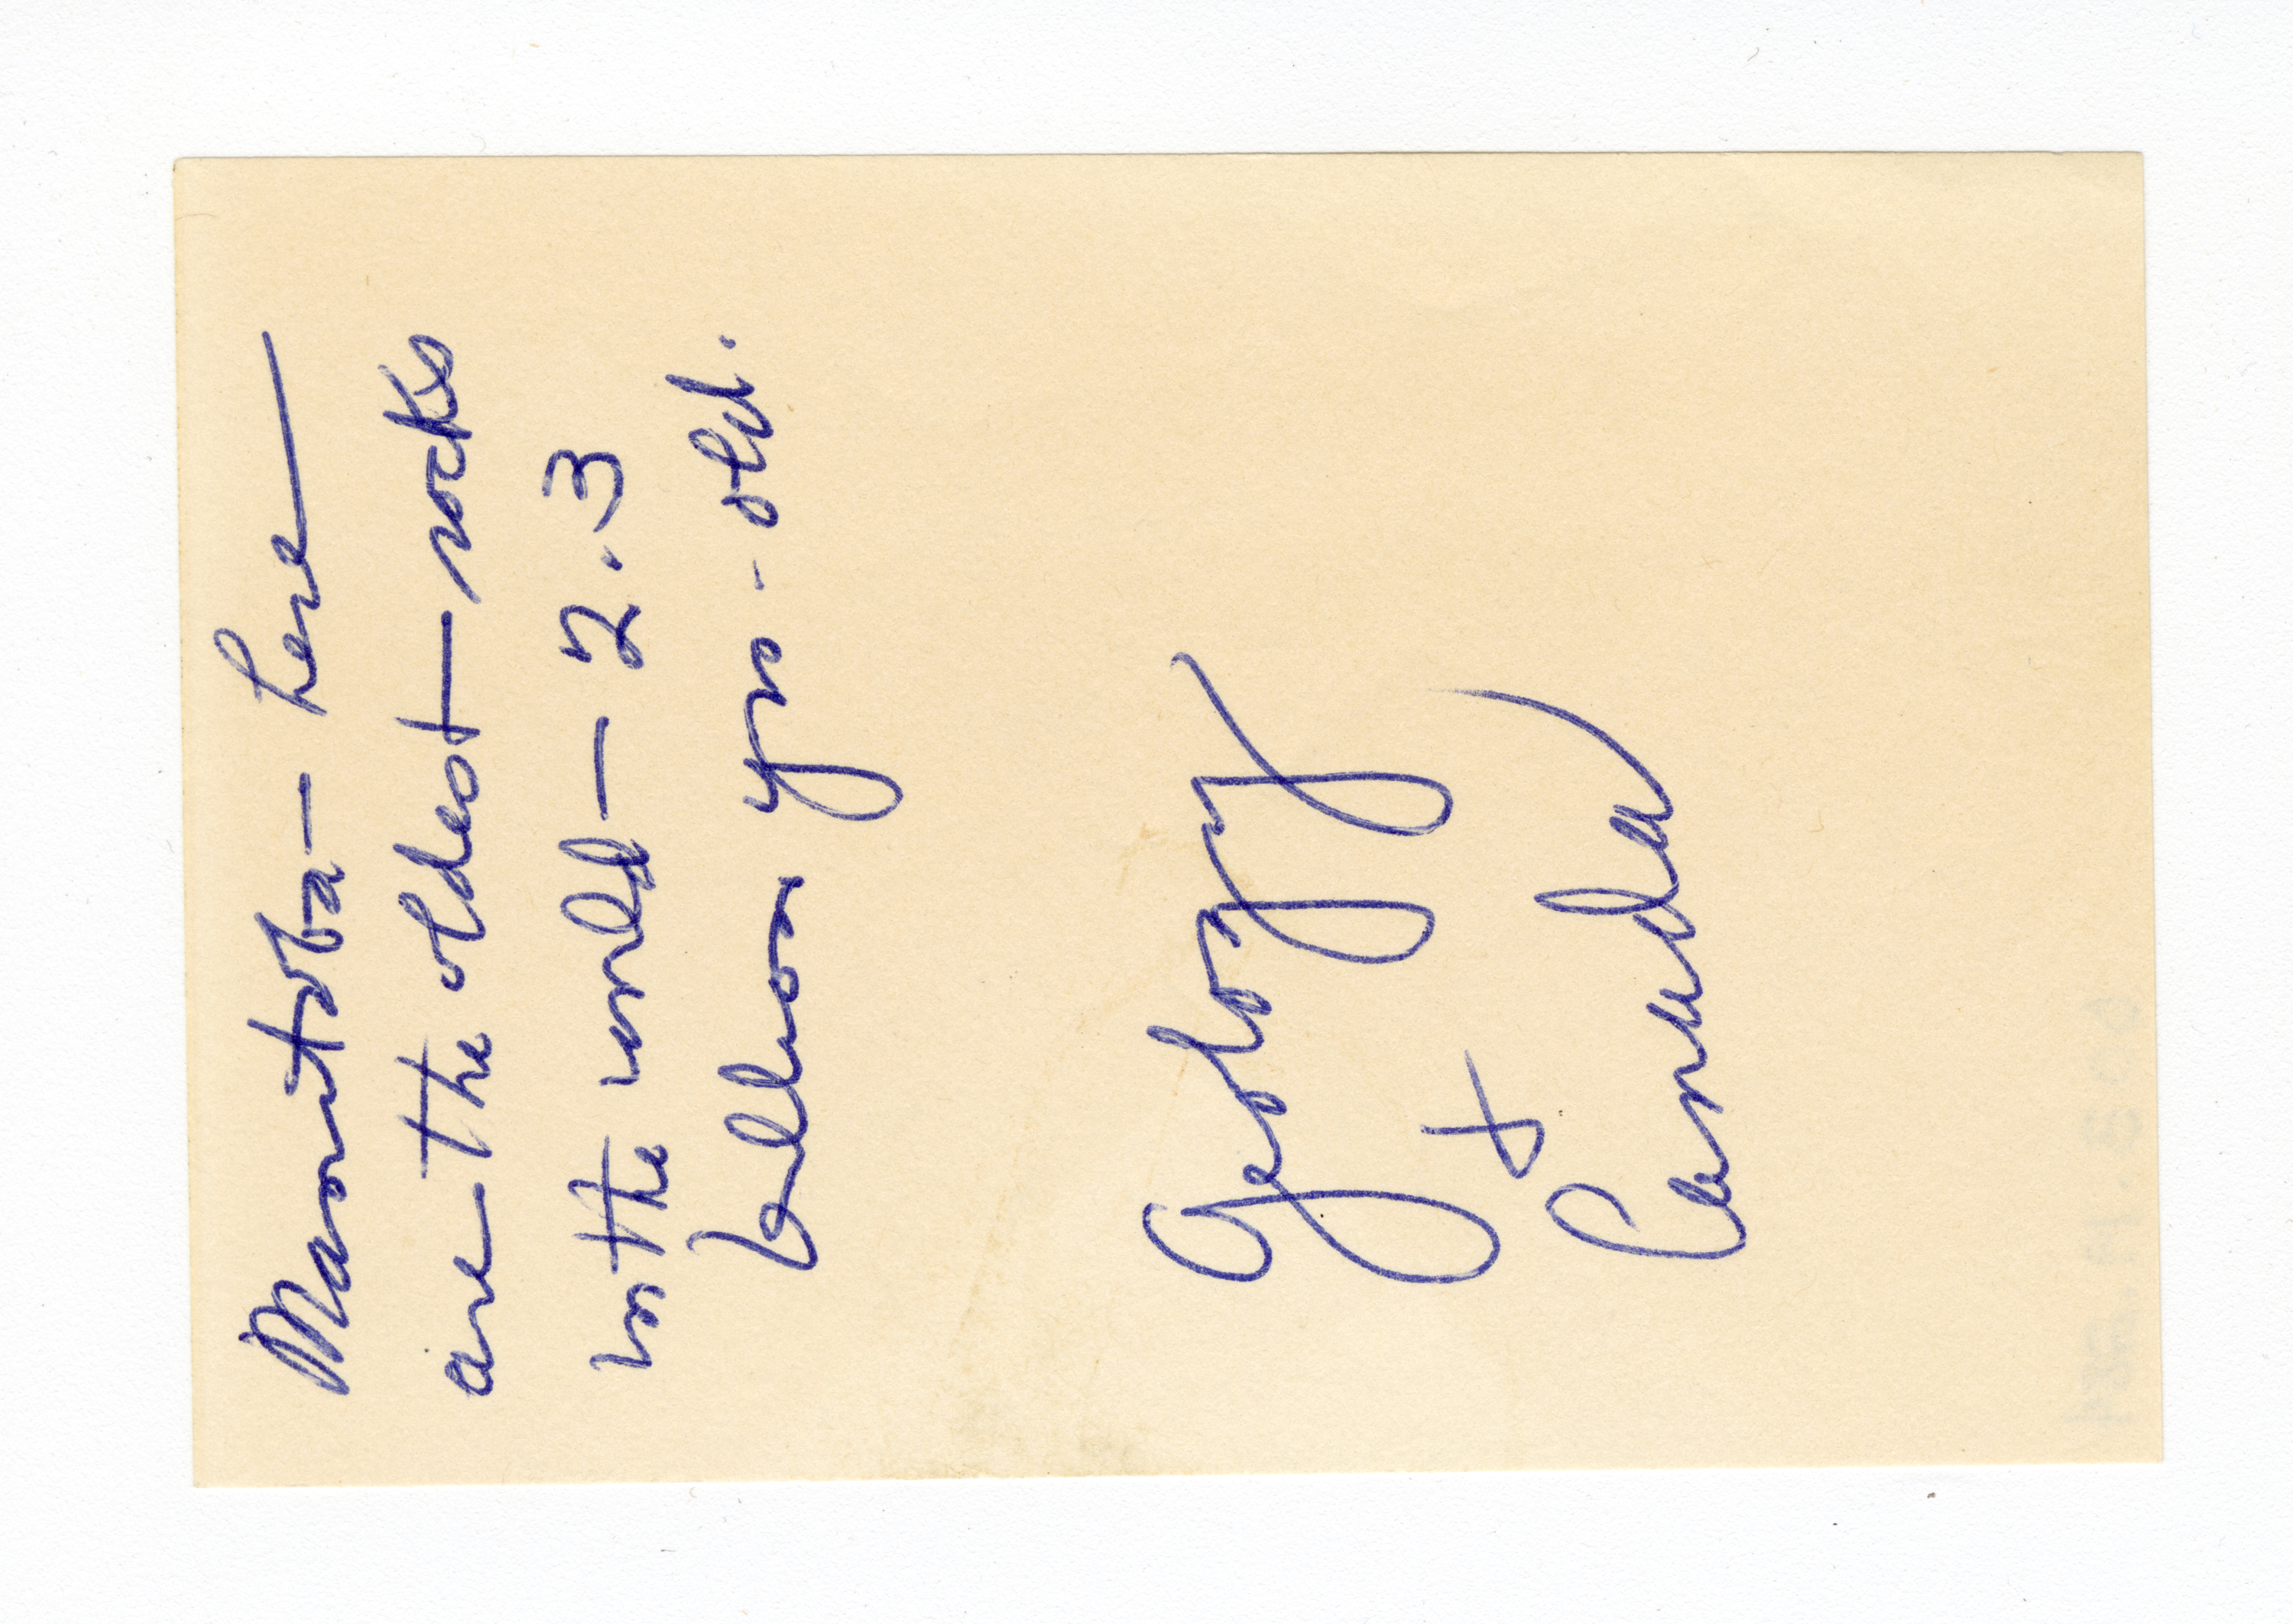 Manitoba – here
are the oldest rocks
in the world – 2.3
billion yrs. old.
Geology
+
Canada